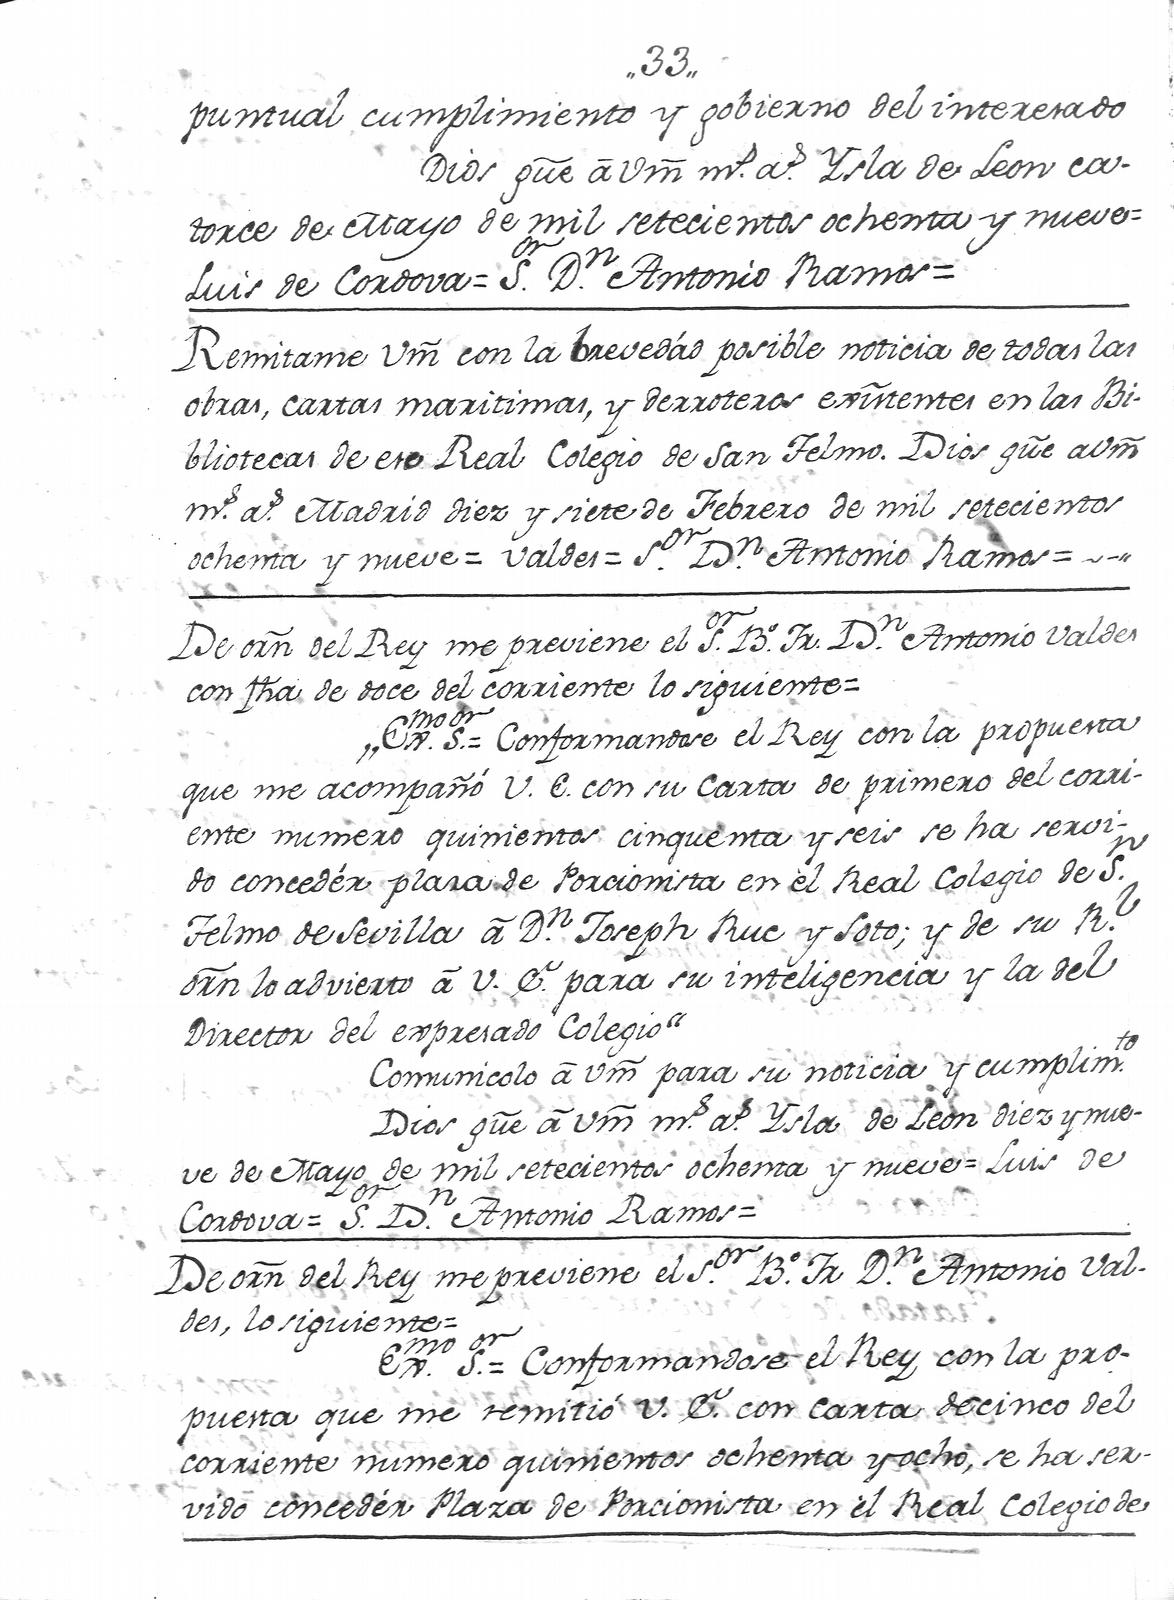 „33„
puntual cumplimiento y gobierno del interesado
Dios gūe ā Vm̃ m.s a.s Ysla de Leon ca-
torce de Mayo de mil setecientos ochenta y nueve=
Luis de Cordova= S.or D.n Antonio Ramos=
Remitame Vm̃ con la brevedád posible noticia de todas las
obras, cartas maritimas, y derroteros exĩstentes en las Bi-
bliotecas de ese Real Colegio de San Telmo. Dios gūe a Vm̃
m.s a.s Madrid diez y siete de Febrero de mil setecientos
ochenta y nueve= Valdes= S.or D.n Antonio Ramos= ~-"
De orñ del Rey me previene el S.or B.o Fr. D.n Antonio Valdes
con fha de doce del corriente lo siguiente=
„Ex.mo S.or= Conformandose el Rey con la propuesta
que me acompañó V. E. con su Carta de primero del corri-
ente numero quinientos cinquenta y seis se ha servi-
do concedér plaza de Porcionista en el Real Colegio de S.n
Telmo de Sevilla ā D.n Joseph Ruc y Soto; y de su R.l
orñ lo advierto ā V. E. para su inteligencia y la del
Director del expresado Colegio"
Comunicolo ā Vm̃ para su noticia y cumplim.to
Dios gūe ā Vm̃ m.s a.s Ysla de Leon diez y nue-
ve de Mayo de mil setecientos ochenta y nueve= Luis de
Cordova= S.or D.n Antonio Ramos=
De orñ del Rey me previene el S.or B.o Fr D.n Antonio Val-
des, lo siguiente=
Ex.mo S.or= Conformandose el Rey con la pro-
puesta que me remitió V. E. con carta de cinco del
corriente numero quinientos ochenta y ocho, se ha ser-
vido concedér Plaza de Porcionista en el Real Colegio de